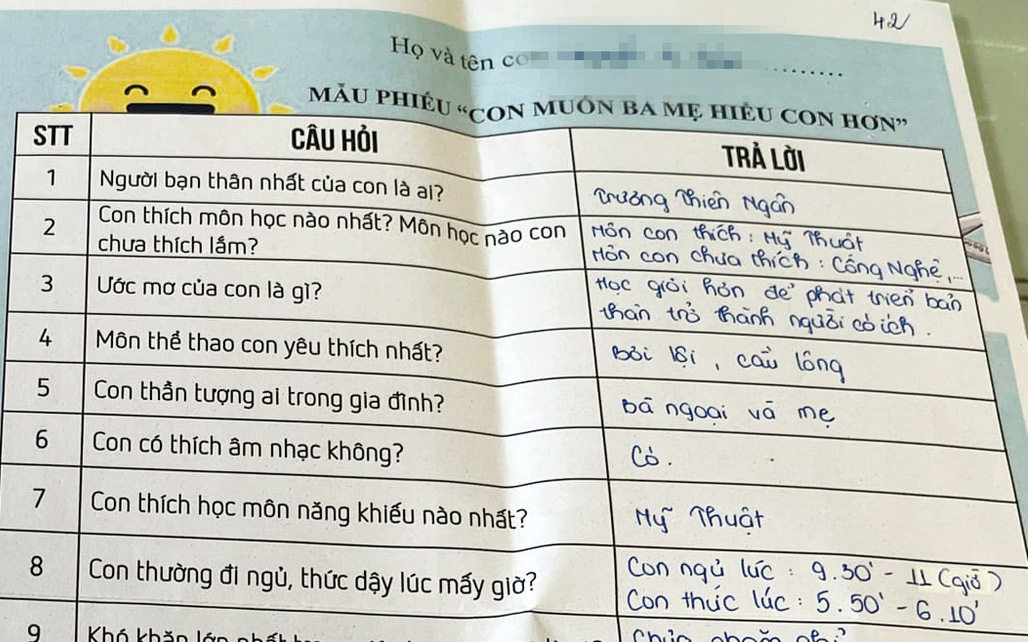 42
Họ và tên con
MẪU PHIẾU “CON MUỐN BA MẸ HIỂU CON HƠN”
STT CÂU HỎI TRẢ LỜI
1 Người bạn thân nhất của con là ai? Trương Thiên Ngân
2 Con thích môn học nào nhất? Môn học nào con
chưa thích lắm?
Môn con thích : Mỹ Thuật
Môn con chưa thích : Công Nghệ,...
3 Ước mơ của con là gì?
Học giỏi hơn để phát triển bản
thân trở thành người có ích.
4 Môn thể thao con yêu thích nhất? Bơi lội, cầu lông
5 Con thần tượng ai trong gia đình? bà ngoại và mẹ
6 Con có thích âm nhạc không? Có.
7 Con thích học môn năng khiếu nào nhất? Mỹ Thuật
8 Con thường đi ngủ, thức dậy lúc mấy giờ?
Con ngủ lúc : 9.30' - 11 (giờ)
Con thức lúc : 5.50' - 6.10'
9 Khó khăn lớn nhất